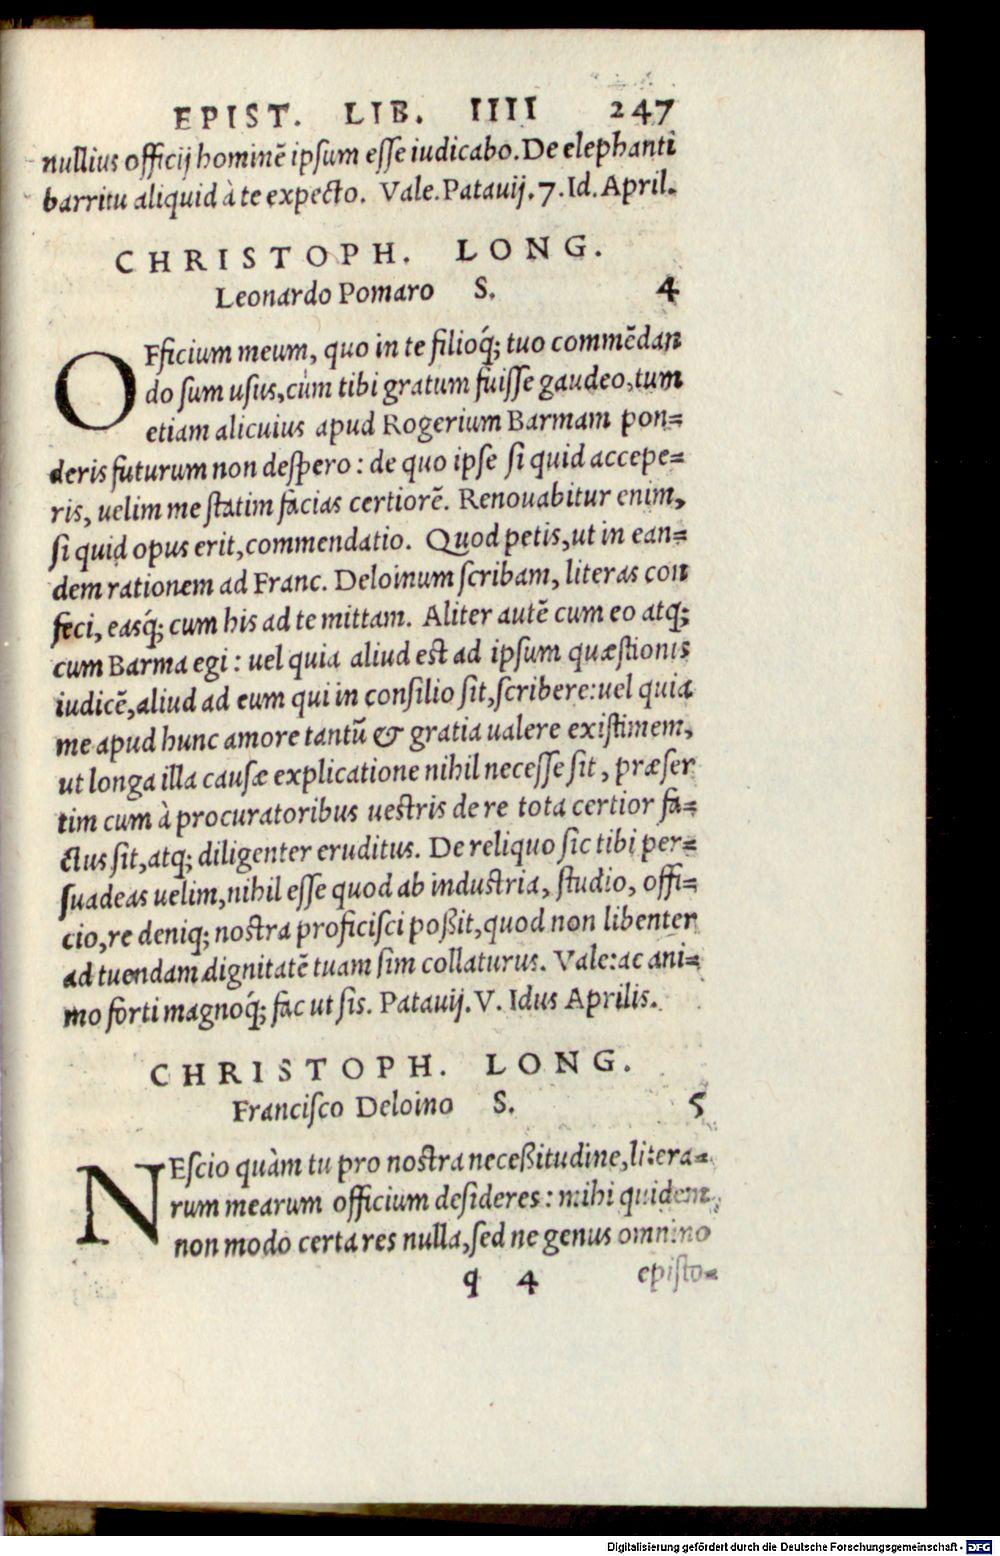 EPIST. LIB. IIII 247
nullius officij hominē ipsum esse iudicabo. De elephanti
barritu aliquid à te expecto. Vale. Patauij. 7. Id. April.
CHRISTOPH. LONG.
Leonardo Pomaro S. 4
OFficium meum, quo in te filioq́; tuo commēdan
do sum usus, cùm tibi gratum fuisse gaudeo, tum
etiam alicuius apud Rogerium Barmam pon=
deris futurum non despero: de quo ipse si quid accepe=
ris, uelim me statim facias certiorē. Renouabitur enim,
si quid opus erit, commendatio. Quod petis, ut in ean=
dem rationem ad Franc. Deloinum scribam, literas con
feci, easq́; cum his ad te mittam. Aliter autē cum eo atq;
cum Barma egi: uel quia aliud est ad ipsum quæstionis
iudicē, aliud ad eum qui in consilio sit, scribere: uel quia
me apud hunc amore tantū & gratia ualere existimem,
ut longa illa causæ explicatione nihil necesse sit, præser
tim cum à procuratoribus uestris de re tota certior fa=
ctus sit, atq; diligenter eruditus. De reliquo sic tibi per=
suadeas uelim, nihil esse quod ab industria, studio, offi=
cio, re deniq; nostra proficisci poßit, quod non libenter
ad tuendam dignitatē tuam sim collaturus. Vale: ac ani=
mo forti magnoq́; fac ut sis. Patauij. V. Idus Aprilis.
CHRISTOPH. LONG.
Francisco Deloino S. 5
NEscio quàm tu pro nostra neceßitudine, litera=
rum mearum officium desideres: mihi quidem,
non modo certa res nulla, sed ne genus omnino
q 4 episto=
Digitalisierung gefördert durch die Deutsche Forschungsgemeinschaft - DFG